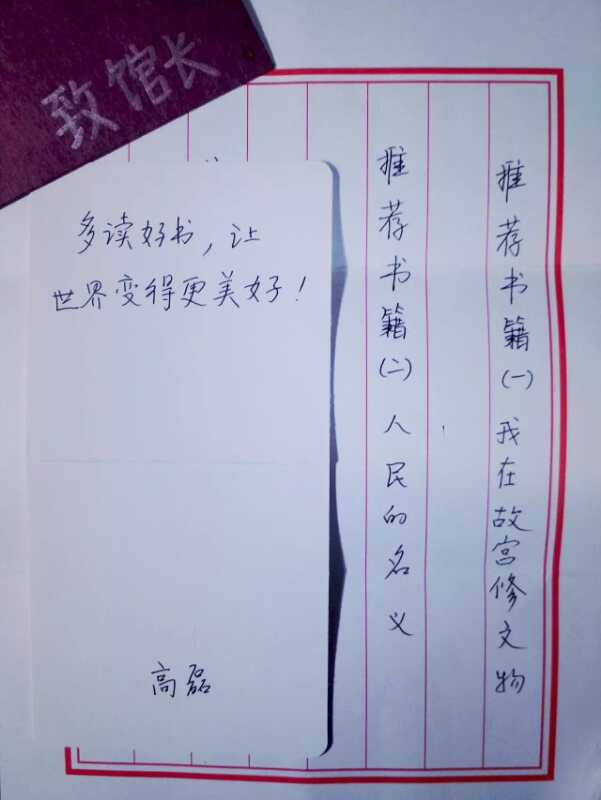 致馆长
多读好书，让
世界变得更美好！
高磊
推荐书籍(一)我在故宫修文物
推荐书籍(二)人民的名义